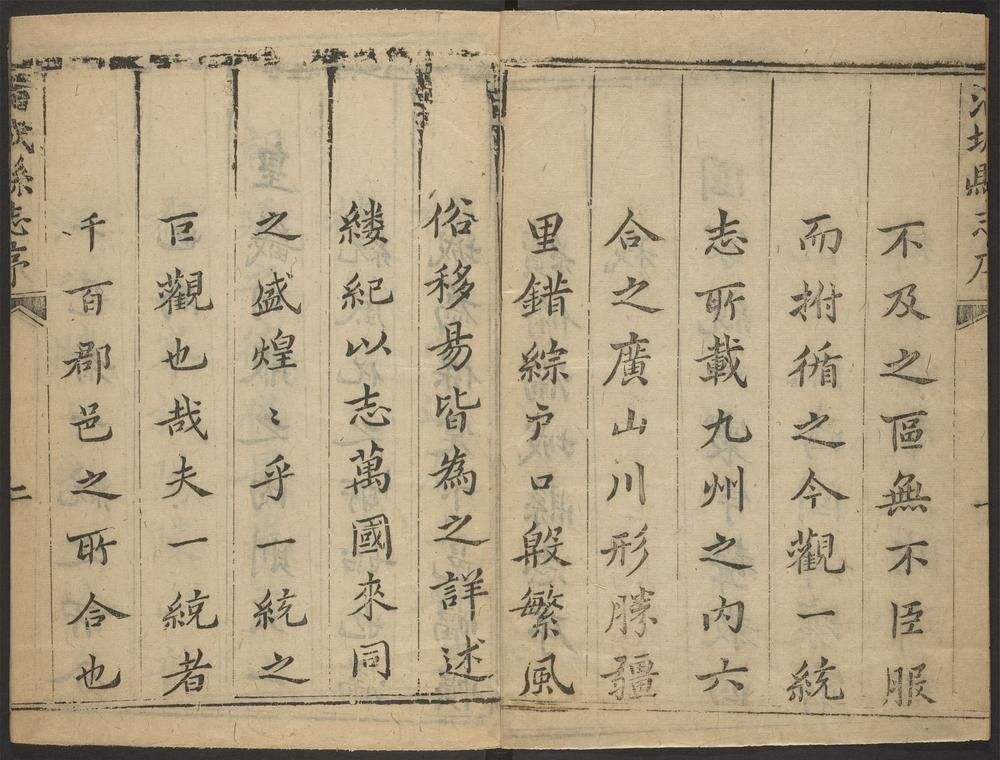 不及之區無不臣服
而拊循之今觀一統
志所載九州之内六
合之廣山川形勝疆
里錯綜户口殷繁風
俗移易皆為之詳述
縷紀以志萬國來同
之盛煌〻乎一統之
巨觀也哉夫一統者
千百郡邑之所合也
縣志序
二